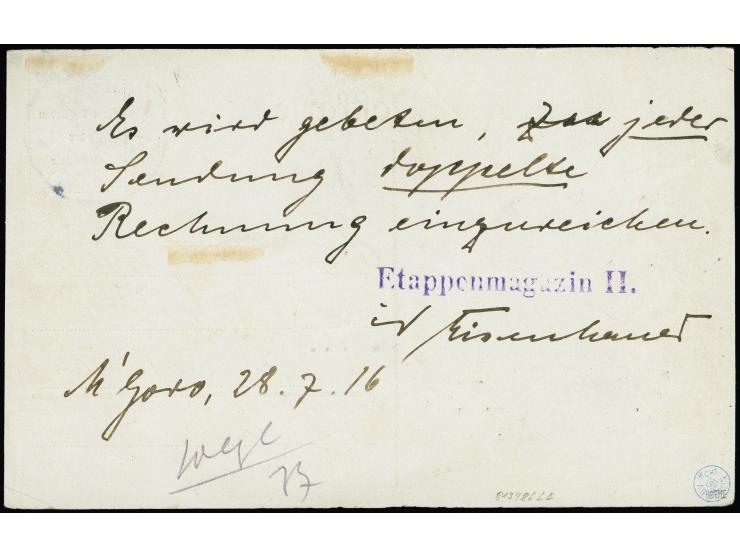 Es wird gebeten, zu jeder
Sendung doppelte
Rechnung einzureichen.
Etappenmagazin II.
Eisenhauer
M'Goro, 28.7.16